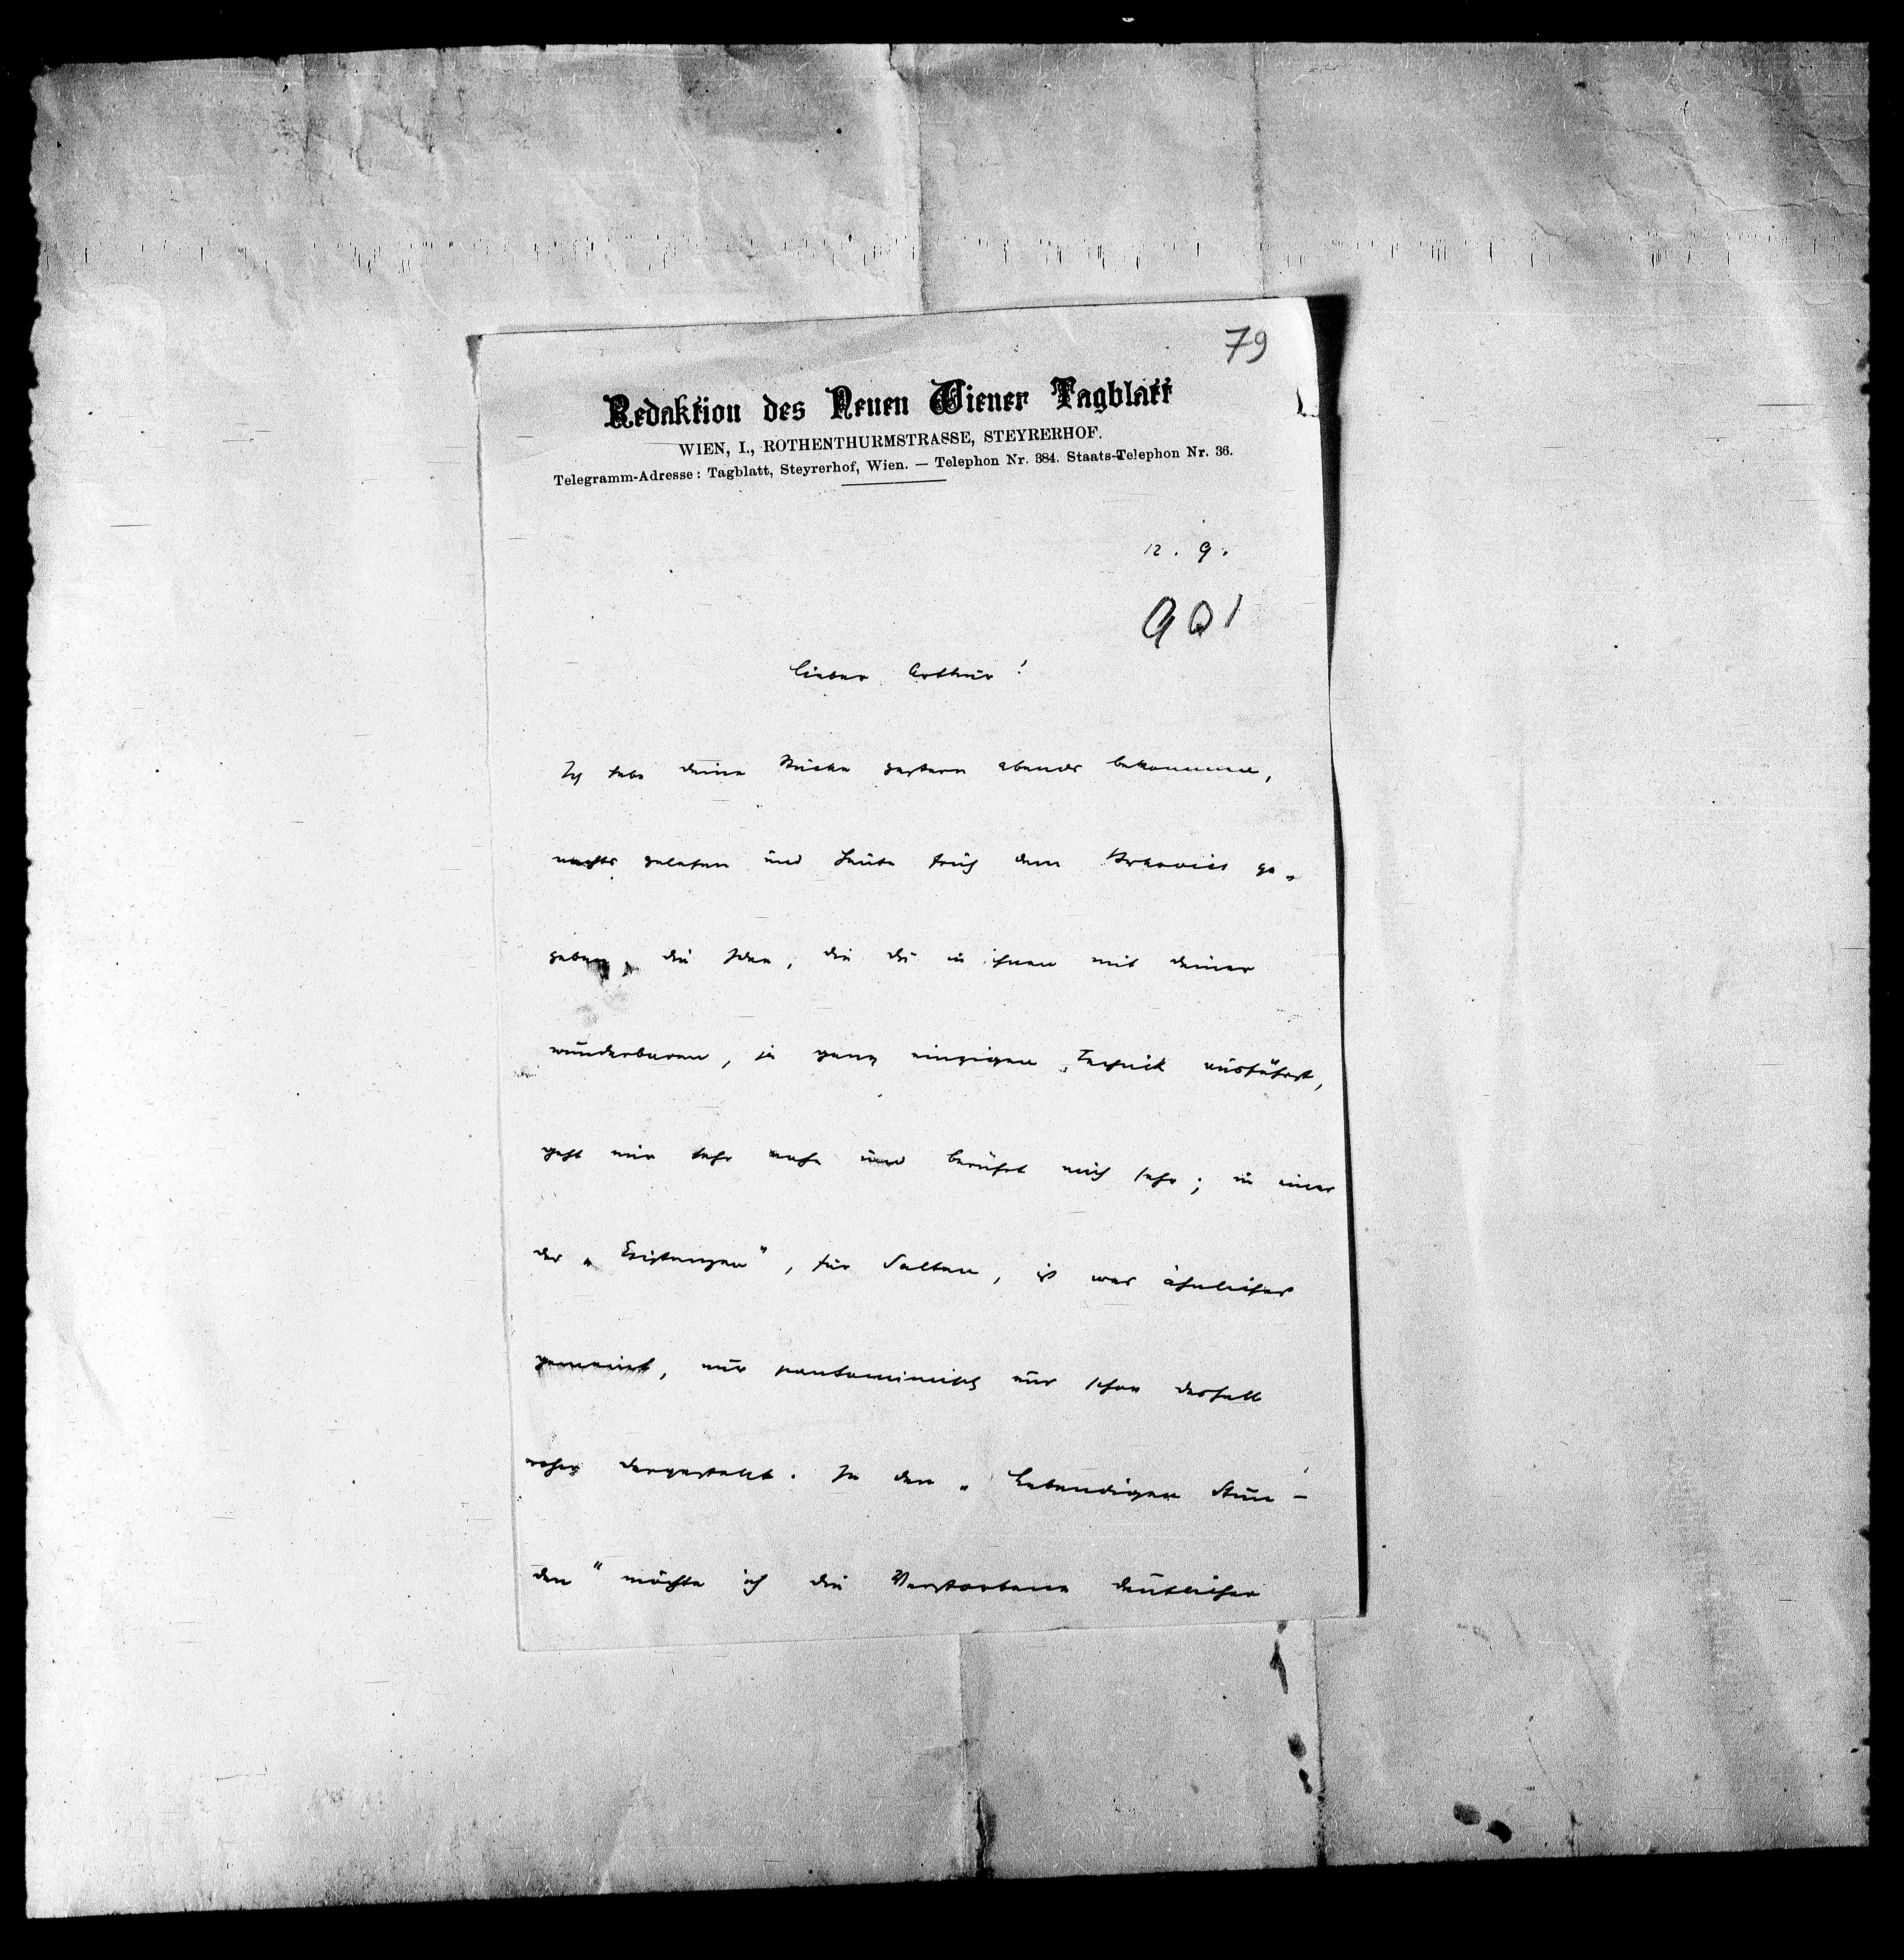 79
Redaktion des Neuen Wiener Tagblatt
WIEN, I., ROTHENTHURMSTRASSE, STEYRERHOF.
Telegramm-Adresse: Tagblatt, Steyrerhof, Wien. — Telephon Nr. 384. Staats-Telephon Nr. 36.
12. 9.
901
Lieber Arthur!
Ich habe deine Stücke gestern abends bekommen,
nachts gelesen und heute früh dem Bukovics ge-
geben. Die Idee, die du in ihnen mit deiner
wunderbaren, ja ganz einzigen Technik ausführst,
geht mir sehr nahe und berührt mich sehr; in einer
der „Existenzen", für Salten, ist was ähnliches
gemeint, nur pantomimisch nur schon deshalb
roher dargestellt. In den „Lebendigen Stun-
den" möchte ich die Verstorbene deutlicher